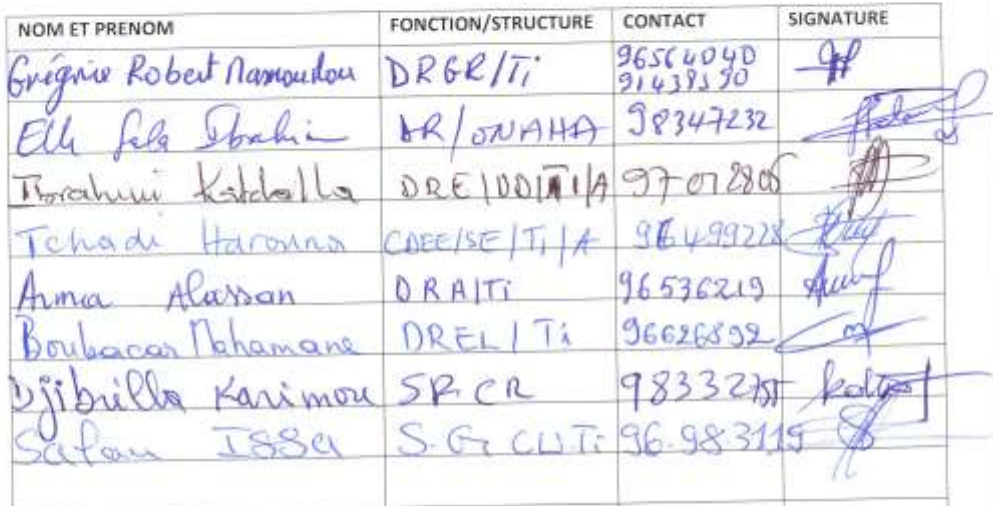 NOM ET PRENOM FONCTION/STRUCTURE CONTACT SIGNATURE
Grégoire Robert Mamoudou DRGR/Ti 96564040
91438590
Elh Sala Ibrahim DR/ONAHA 98347232
Ibrahim Katchalla DRE/DD/TI/A 97012806
Tchadi Harouna CDEE/SE/Ti/A 96499228
Arma Alassan DRA/Ti 96536219
Boubacar Mahamane DREL/Ti 96626892
Djibrilla Karimou SRCR
Safau ISSa S.G CU.Ti 96.983119